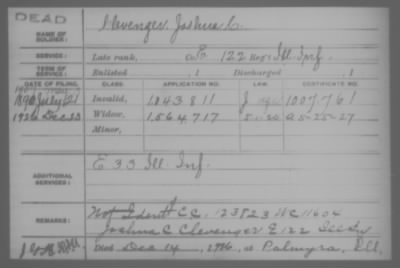 DEAD
NAME OF SOLDIER: Clevenger, Joshua C.
SERVICE: Late rank, Co. 122 Reg't Ill. Inf.
TERM OF SERVICE: Enlisted , 1 Discharged , 1
DATE OF FILING. CLASS. APPLICATION NO. LAW. CERTIFICATE NO.
1890 July 21 Invalid, 1043811 1007761
1926 Dec 23 Widow, 1564717 5-1-20 A5-25-27
Minor,
ADDITIONAL SERVICES: E 33 Ill. Inf.
REMARKS: C.C. 123823 11604
Joshua C Clevenger E 122
Died Dec 14, 1926, at Palmyra, Ill.